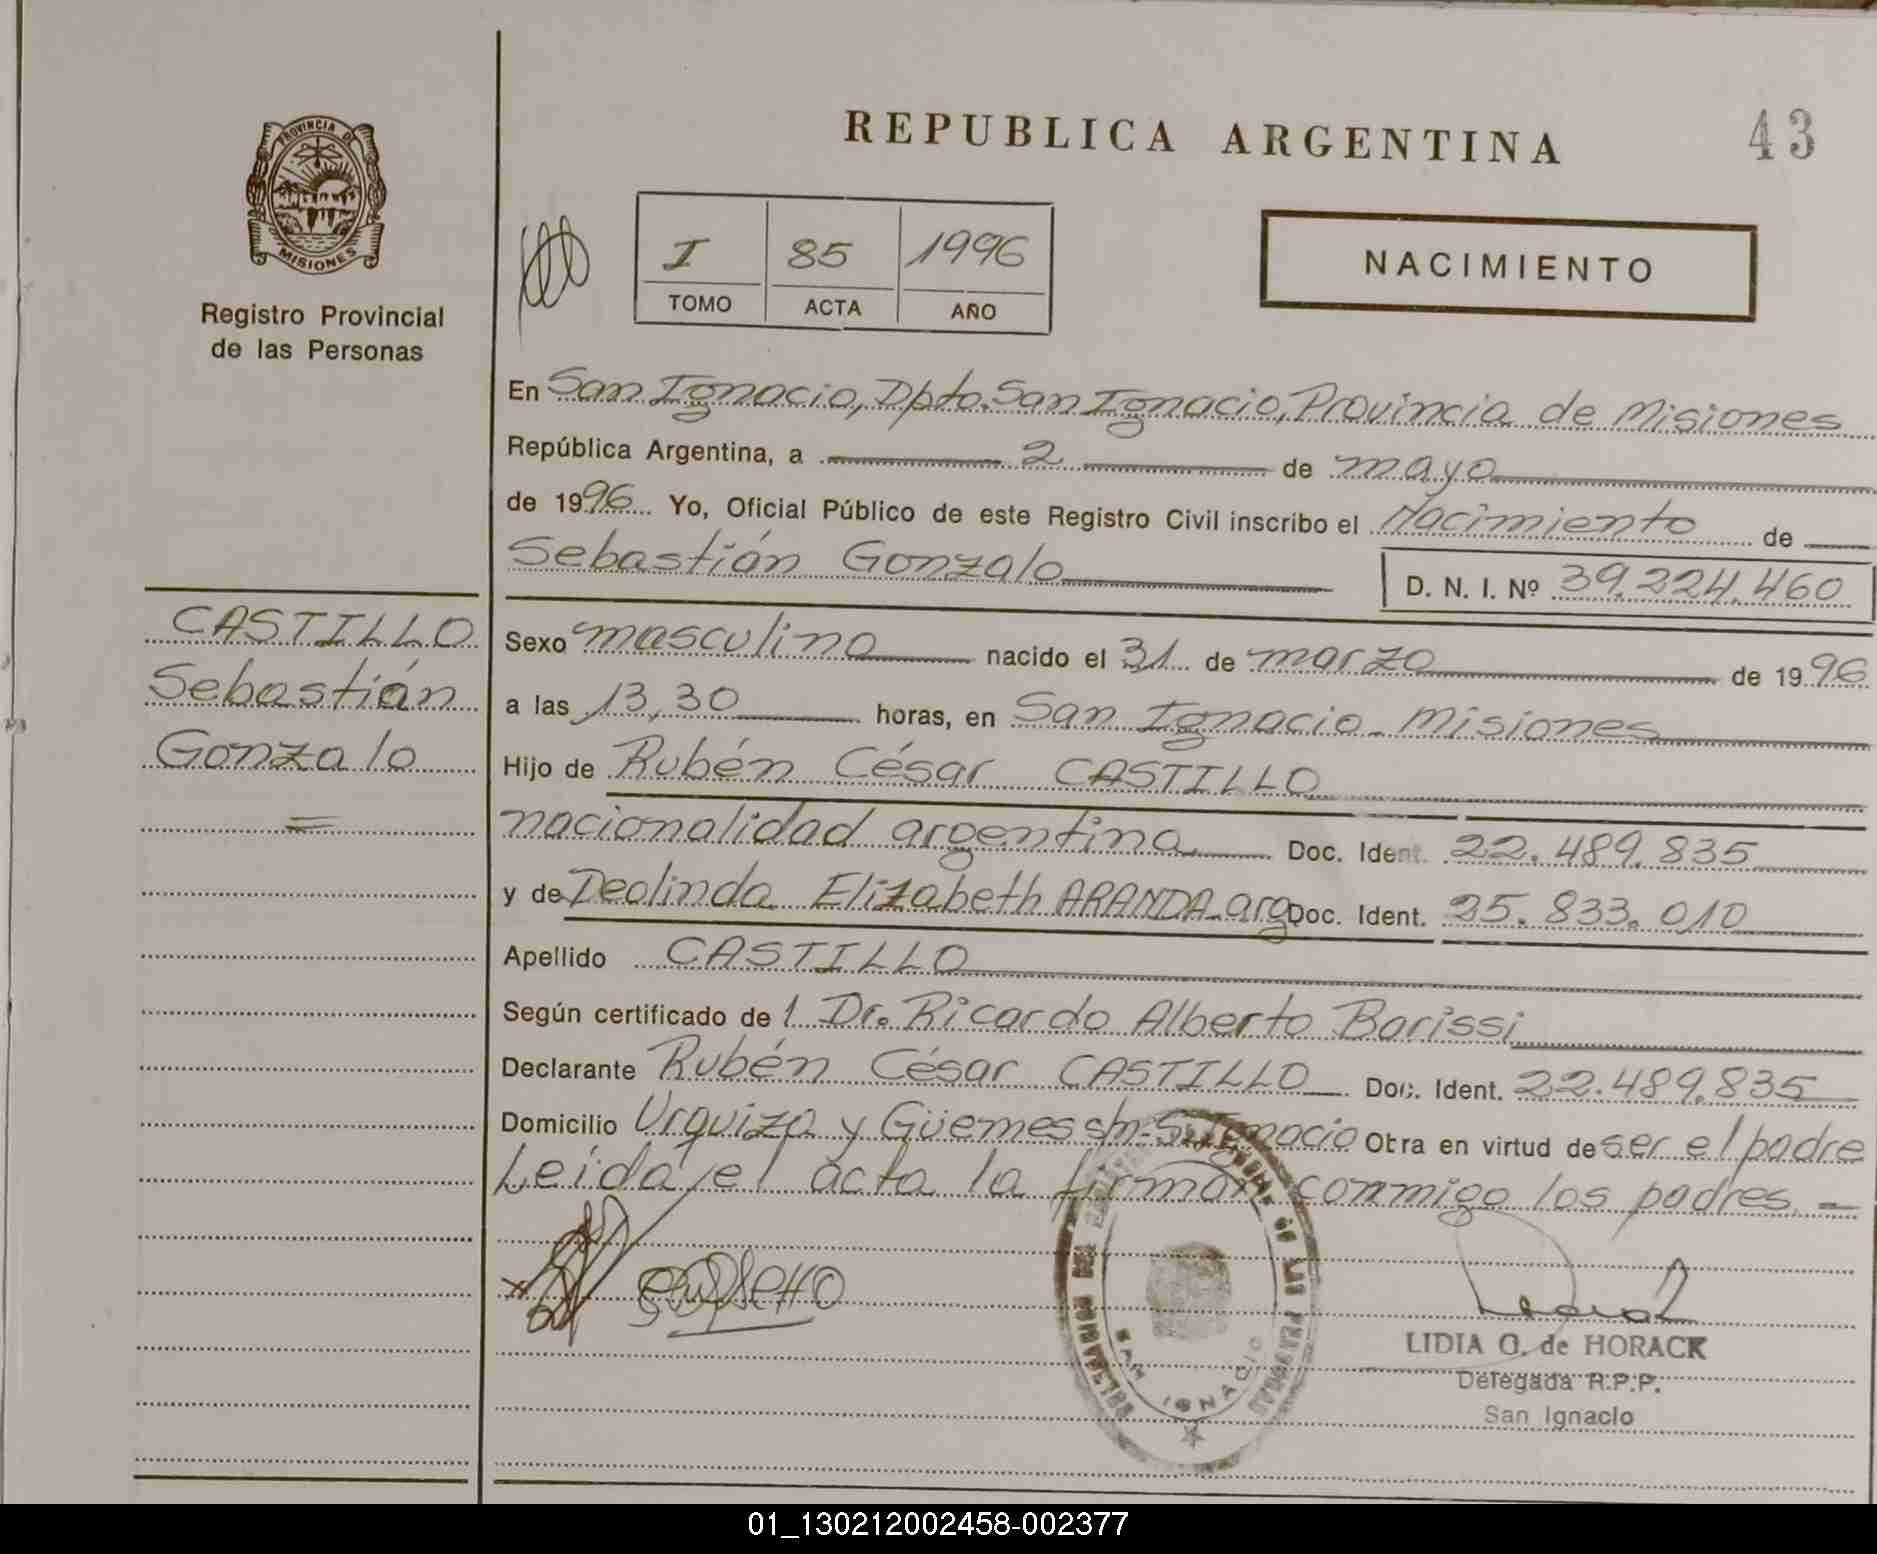 REPUBLICA ARGENTINA
43
PROVINCIA DE
MISIONES
Registro Provincial
de las Personas
I 85 1996
TOMO ACTA AÑO
NACIMIENTO
En San Ignacio, Dpto. San Ignacio, Provincia de Misiones
República Argentina, a 2 de mayo
de 1996 Yo, Oficial Público de este Registro Civil inscribo el Nacimiento de
Sebastián Gonzalo D. N. I. Nº 39.224.460
CASTILLO
Sebastián
Gonzalo
=
Sexo masculino nacido el 31 de marzo de 1996
a las 13,30 horas, en San Ignacio - Misiones
Hijo de Rubén César CASTILLO
nacionalidad argentina Doc. Ident. 22.489.835
y de Deolinda Elizabeth ARANDA-arg Doc. Ident. 25.833.010
Apellido CASTILLO
Según certificado de 1 Dr. Ricardo Alberto Barissi
Declarante Rubén César CASTILLO Doc. Ident. 22.489.835
Domicilio Urquiza y Güemes s/n-S. Ignacio Otra en virtud de ser el padre
Leída el acta la firman conmigo los padres. -
DE LAS PERSONAS
SAN IGNACIO
LIDIA O. de HORACK
Delegada R.P.P.
San Ignacio
01_130212002458-002377